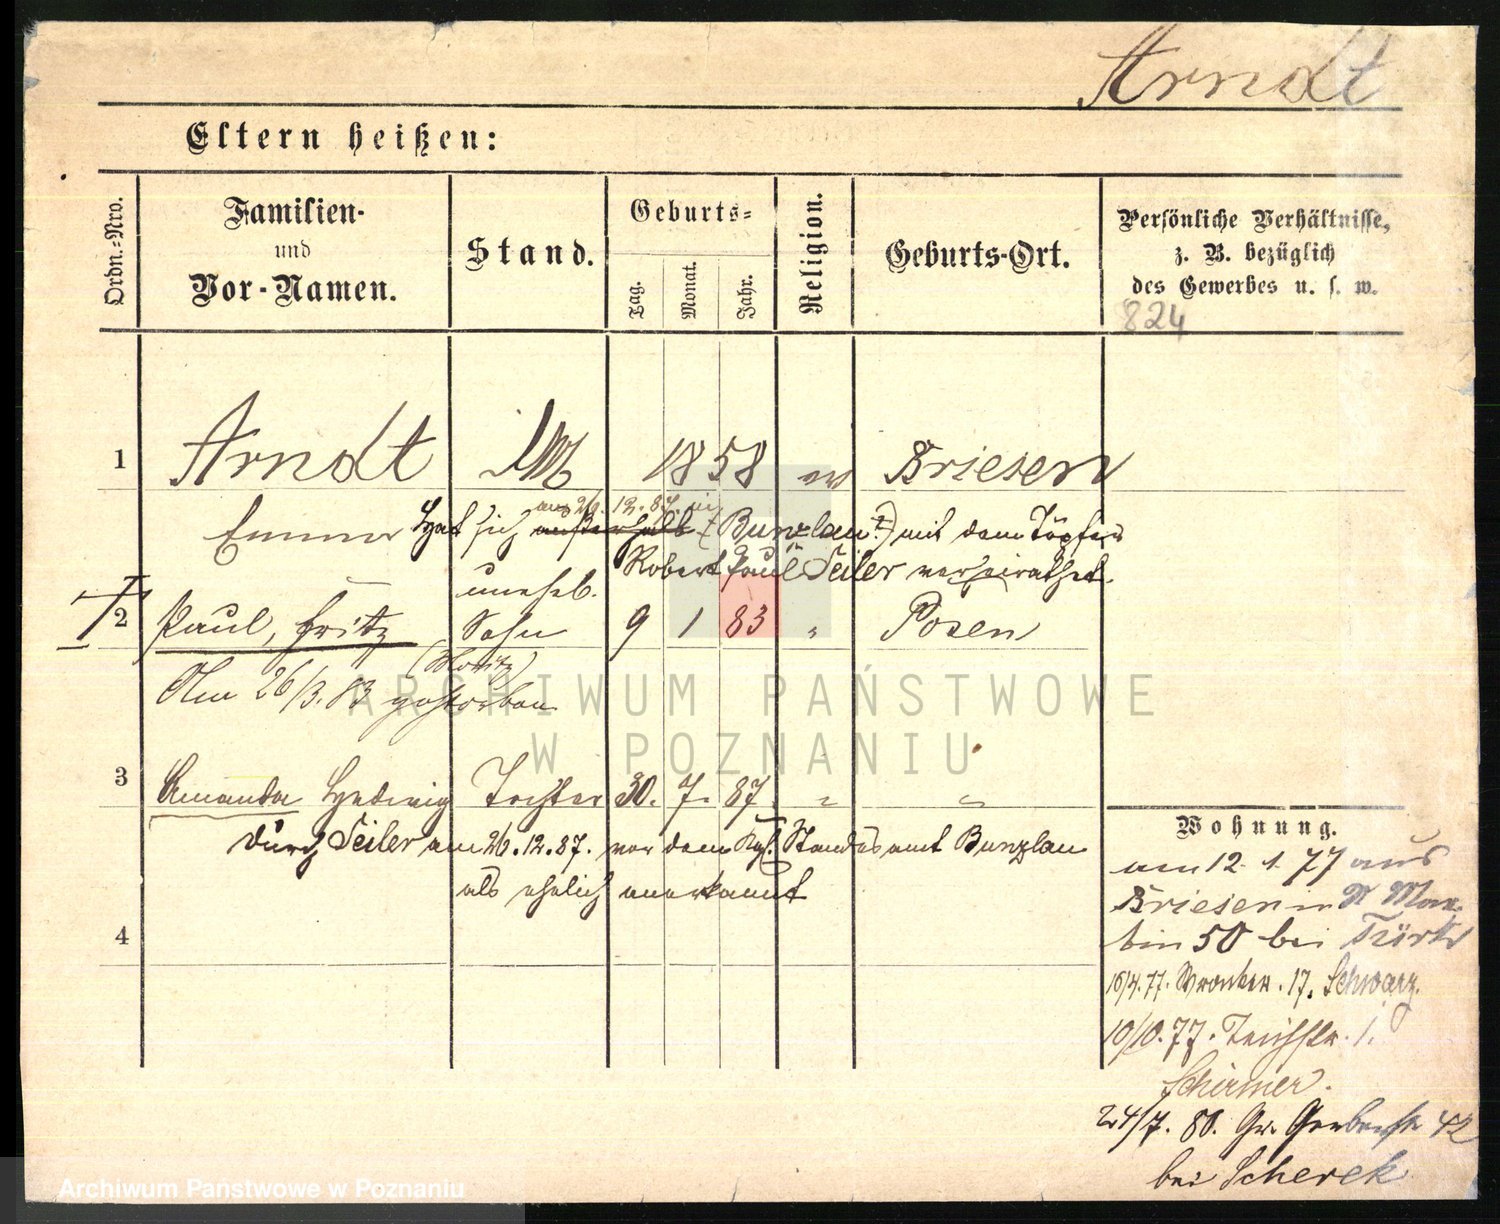 Arndt
Eltern heißen:
Ordn.-Nro.
Familien-
und
Vor-Namen.
Stand.
Geburts-
Tag.
Monat.
Jahr.
Religion.
Geburts-Ort.
Persönliche Verhältnisse,
z. B. bezüglich
des Gewerbes u. s. w.
824
1 Arndt 1858 ev Briesen
am 26. 12. 87. in
Emma hat sich außerhalb (Bunzlau?) mit dem Töpfer
Robert Paul Seiler verheirathet.
unehl.
2 Paul, Fritz Sohn 9 1 83 " Posen
(Moritz)
Am 26/3.83 gestorben
3 Amanda Hedwig Tochter 30. 7. 87. " "
durch Seiler am 26.12.87. vor dem Kgl. Standesamt Bunzlau
als ehelich anerkannt
4
Wohnung.
am 12. 1. 77 aus
Briesen
50 bei Türk
16/4.77. Wronker. 17. Schwarz.
10/10.77. Teichstr. 1.
Schirmer.
24/7. 80. Gr. Gerberstr 42
bei Scherek
ARCHIWUM PAŃSTWOWE
W POZNANIU
Archiwum Panstwowe w Poznaniu